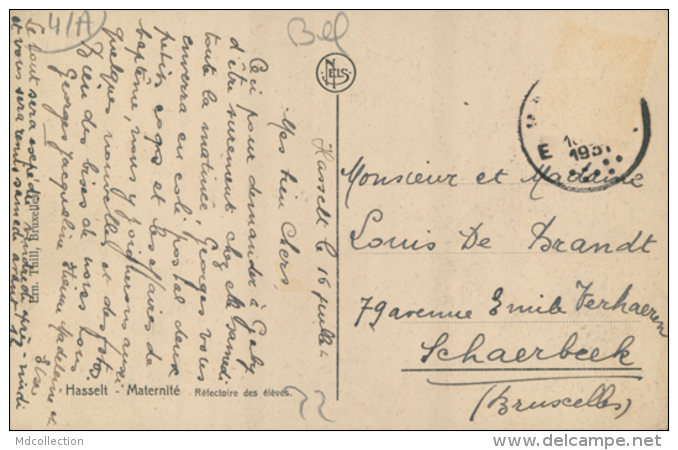 4/A
Bel
NELS
Hasselt le 16 juillet
Mes bien Chers,
Ceci pour demander à Gaby
d'être surement chez elle samedi
toute la matinée, Georges vous
enverra en colis postal deux
petits coqs et les affaires de
baptême, nous y joindrons aussi
quelques nouvelles et des photos
Bien des bises de nous tous
Georges Jacqueline Etienne Madeleine et
Elsa
Le tout sera expédié vendredi après-midi
et vous sera remis samedi avant 12
Ern. Thill, Bruxelles
Hasselt - Maternité Réfectoire des élèves.
22
E 193
Monsieur et Madame
Louis De Brandt
79 avenue Emile Verhaeren
Schaerbeek
(Bruxelles)
Mdcollection
www.delcampe.net